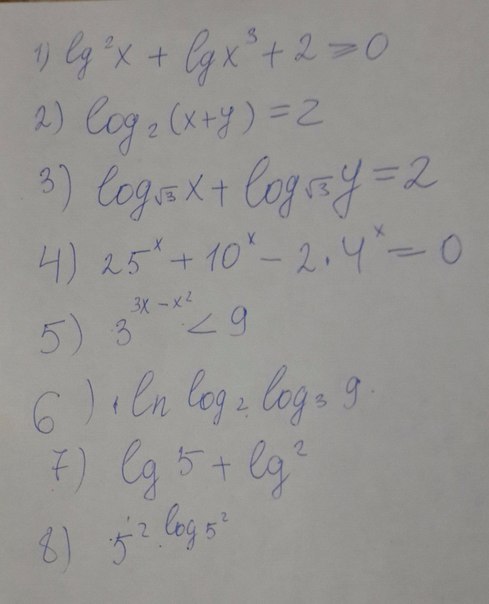 1) lg²x + lgx³ + 2 ⩾ 0
2) log₂(x+y) = 2
3) log√3 x + log√3 y = 2
4) 25ˣ + 10ˣ - 2·4ˣ = 0
5) 3^(3x-x²) < 9
6) ln log₂ log₃ 9.
7) lg 5 + lg²
8) 5² log5²